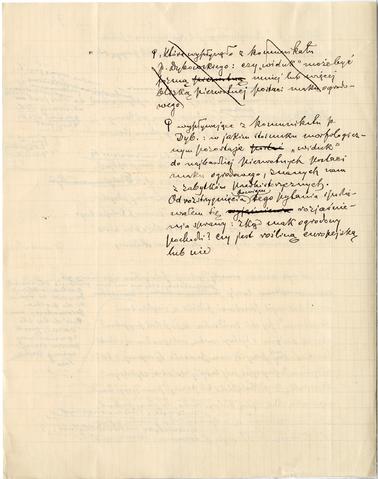 P. które wypłynęło z komunikatu
p. Dybowskiego: czy „widuk” może być
formą pierwotną mniej lub więcej
bliską pierwotnej postaci maku ogrodo-
wego
P wypływające z komunikatu p.
Dyb.: w jakim stosunku morfologicz-
nym pozostaje „widuk”
do najbardziej pierwotnych postaci
maku ogrodowego, znanych nam
z zabytków przedhistorycznych.
Od rozstrzygnięcia tego pytania spodzie-
wałem się wyjaśnienia rozjaśnie-
nia sprawy: skąd mak ogrodowy
pochodzi? czy jest rośliną europejską
lub nie